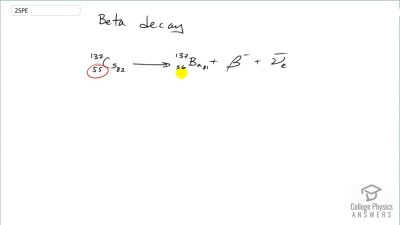 25PE
Beta decay
¹³⁷₅₅Cs₈₂ → ¹³⁷₅₆Ba₈₁ + β⁻ + ν̅ₑ
College Physics
ANSWERS